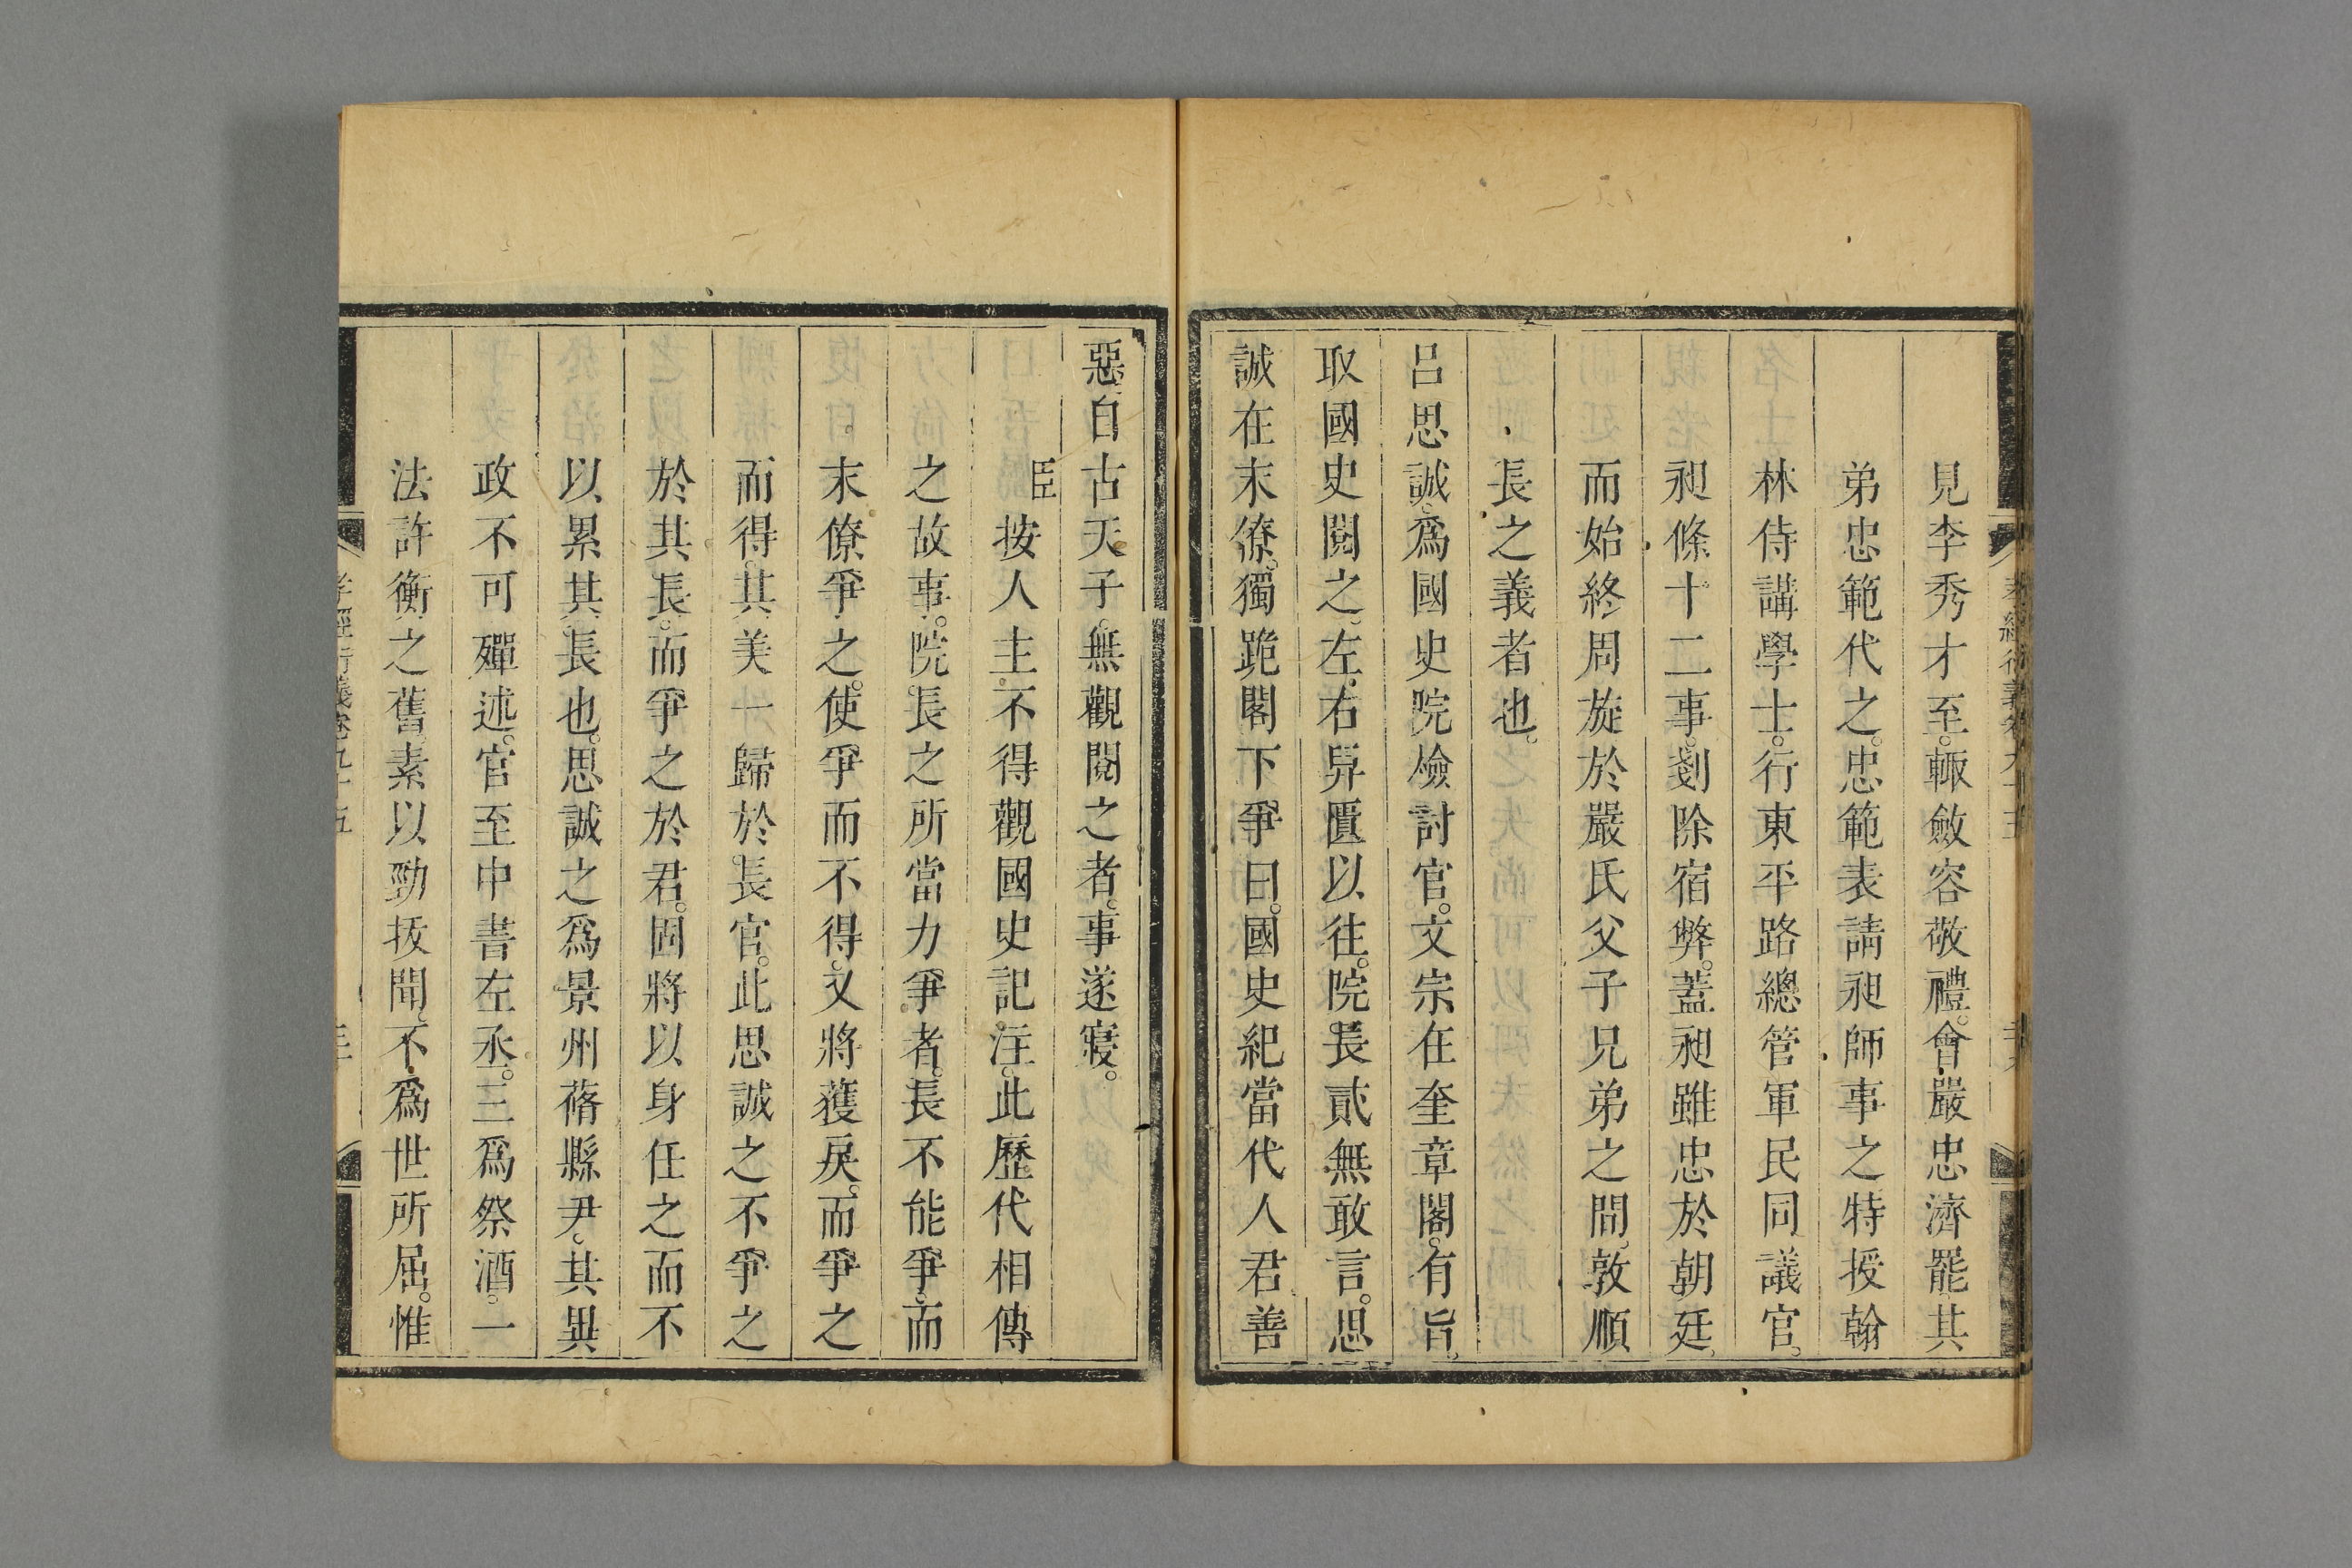 見李秀才至。輙斂容敬禮。會嚴忠濟罷其
弟忠範代之。忠範表請昶師事之特授翰
林侍講學士。行東平路總管軍民同議官。
昶條十二事。剗除宿弊。蓋昶雖忠於朝廷。
而始終周旋於嚴氏父子兄弟之間。敦順
長之義者也。
呂思誠。爲國史院檢討官。文宗在奎章閣。有旨。
取國史閱之。左右舁匱以往。院長貳無敢言。思
誠在末僚。獨跪閣下爭曰。國史紀當代人君善
惡。自古天子。無觀閱之者。事遂寢。
臣按人主不得觀國史記注。此歷代相傳
之故事。院長之所當力爭者。長不能爭。而
末僚爭之。使爭而不得。又將獲戾。而爭之
而得。其美一歸於長官。此思誠之不爭之
於其長。而爭之於君。固將以身任之而不
以累其長也。思誠之爲景州蓨縣尹。其異
政不可殫述。官至中書左丞。三爲祭酒。一
法許衡之舊。素以勁拔聞。不爲世所屈。惟
孝經衍義卷九十五